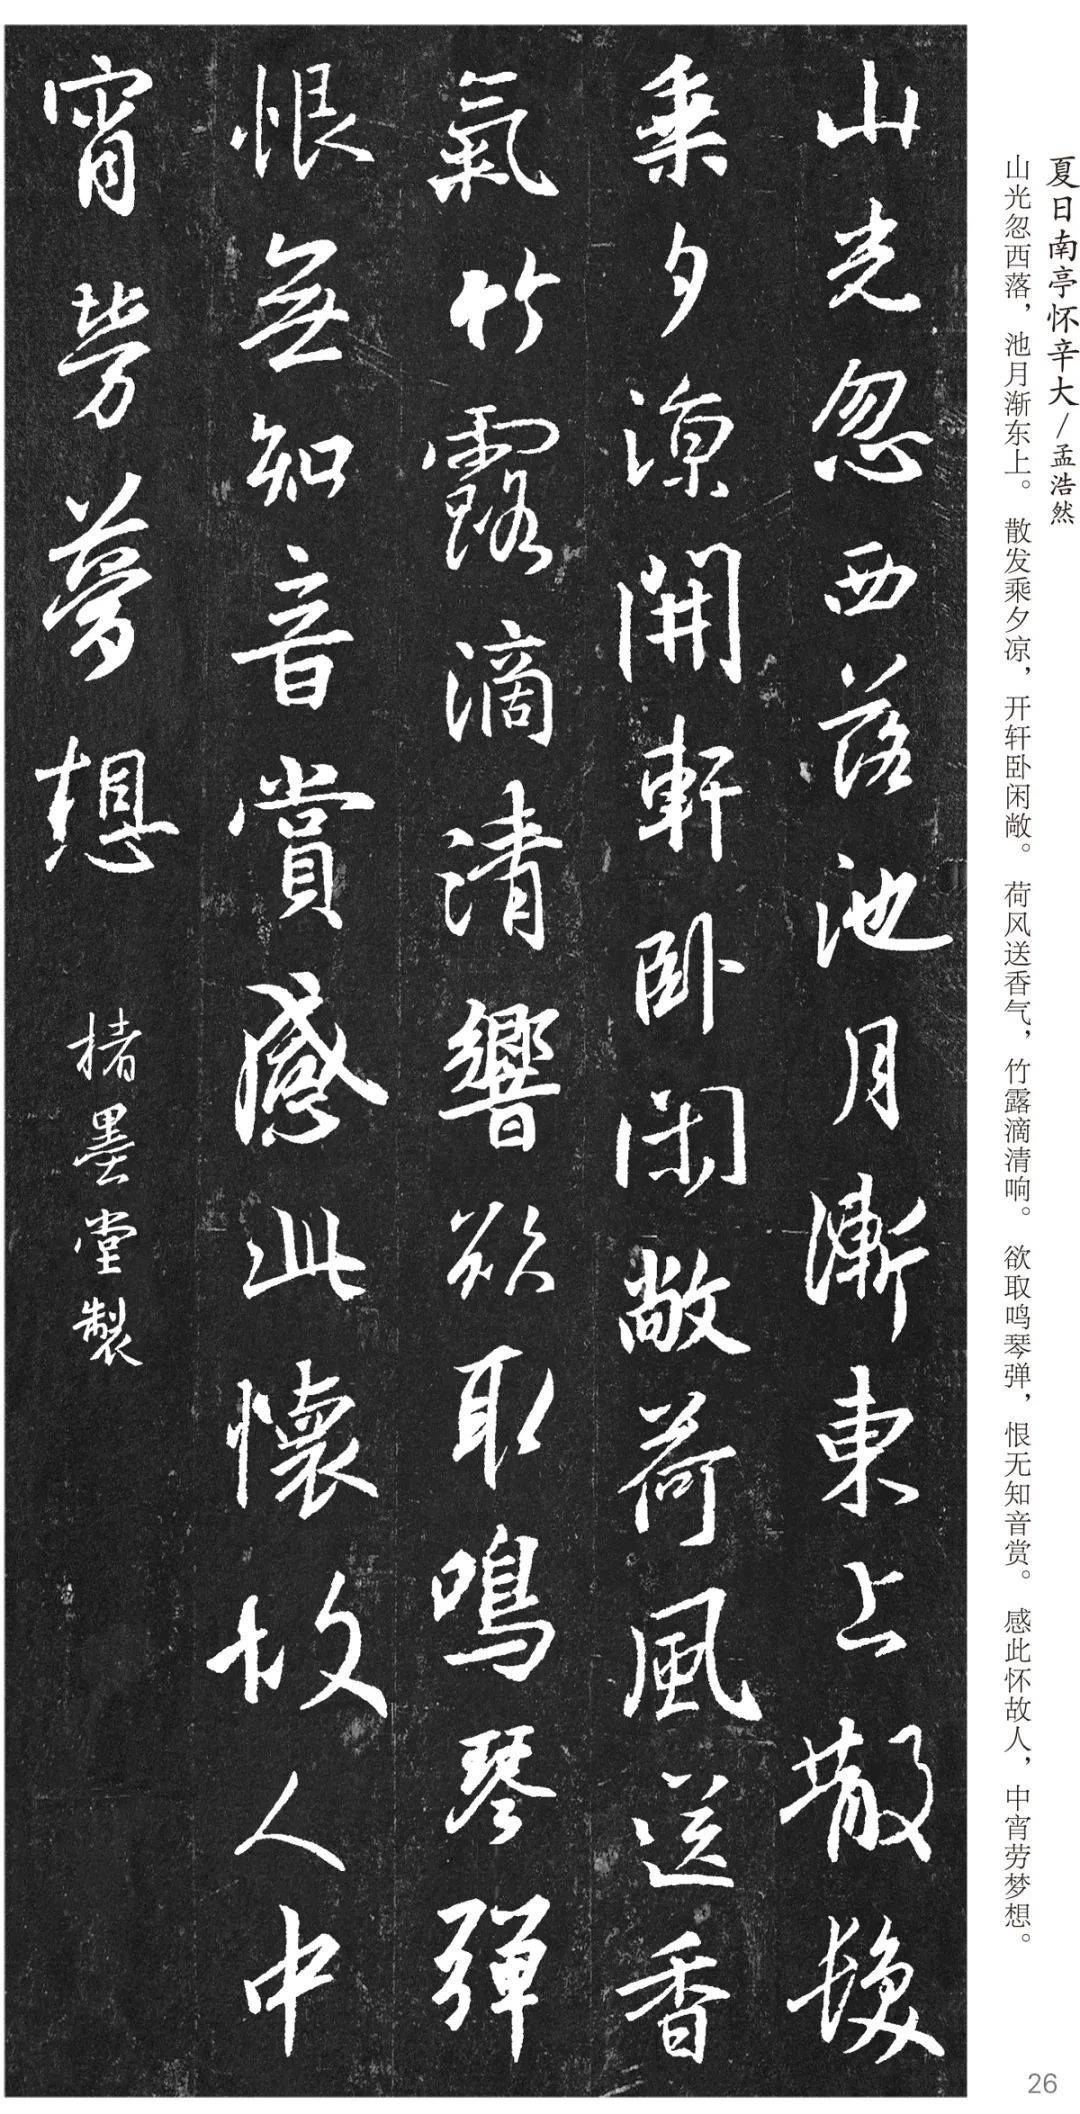 夏日南亭怀辛大/孟浩然
山光忽西落，池月渐东上。散发乘夕凉，开轩卧闲敞。荷风送香气，竹露滴清响。欲取鸣琴弹，恨无知音赏。感此怀故人，中宵劳梦想。
山光忽西落池月漸東上散髮
乘夕涼開軒卧闲敞荷風送香
氣竹露滴清響欲取鳴琴彈
恨無知音賞感此懷故人中
宵勞夢想
楮墨堂製
26